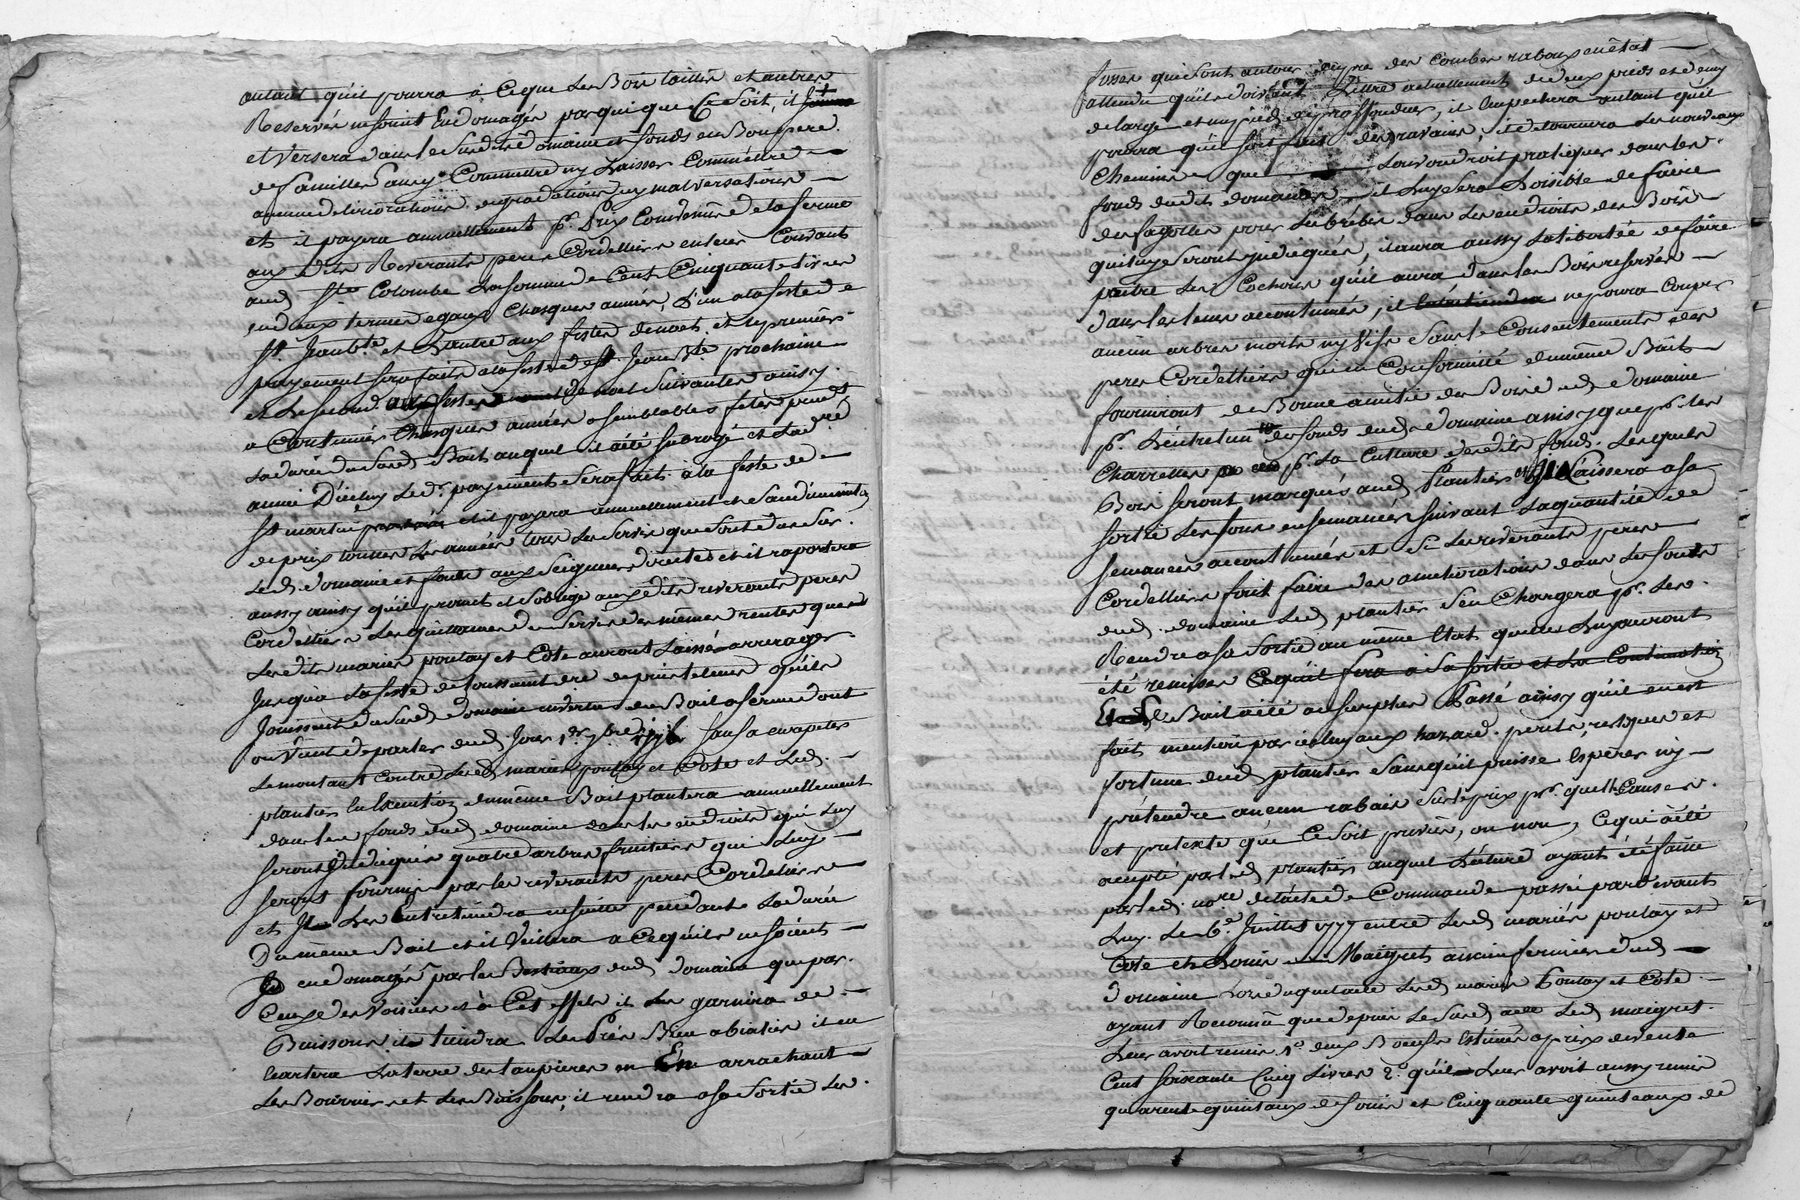 autant qu'il pourra à Ceque Les Bois taillis et autres
Reservés nesoint Endomagés par qui que Ce Soit, il
et Versera dans le Susd. domaine et fonds en Bon pere
de famille Sans y Commettre ny Laisser Commettre
aucune deteriorations degradations ny malversations
et il payera annuellement pr. Prix Condonné de la ferme
aux dits Reverants peres Cordelliers en leur Couvant
aud Ste Colombe La somme de Cent Cinquante Livres
en deux termes egaux Chasques années, L'un a la feste de
St. Jean Bte. et L'autre aux festes denoel, et Le premier
payement sera fait a la feste de St. Jean Bte prochaine
et Le second aux festes de noel Suivantes ainsy
a Continuer Chasques années a semblables fetes pendt
La durée du Susd. Bail auquel il a été subrogé et La dre
année D'icelluy Led. payement Sera fait à la feste de
St martin et il payera annuellement et Sans diminution
de prix toutes Les années tous Les Servis que Sont du Sur
Led. domaine et fonds aux Seigneurs directes et il raportera
aussy ainsy qu'il promet et S'oblige auxdits reverants peres
Cordelliers Les quittances du Servis des mêmes rentes que
Lesdits mariés poulay et Cote auront Laissé arrerager
Jusqu'a La feste de toussaint dre depuis Le tems qu'ils
Jouissent du Susd. domaine en vertu du Bail a ferme dont
on Vient de parler dud Jour 1er 7bre Sauf a en repeter
Le montant Contre Lesd. mariés poulay et Cote et Led.
plantier En Execution du même Bail plantera annuellement
dans les fonds dud domaine dans les endroits qui Luy
seront Indiqués quatre arbres fruitiers qui Luy
seront fournis par les reverants peres Cordeliers
et Il Les Entretiendra ensuitte pendant La durée
Du même Bail et il Veillera a Cequ'ils ne soient
endomagés par les Bestiaux dud domaine que par
Ceux des Voisins et à Cet effet il Les garnira de
Buissons il tiendra Les Prés Bien abialés il en
Ecartera La terre des taupieres en arrachant
Les Bourriers et Les Buissons, il rendra a sa Sortie Les
fosses qui sont autour des Combes rabaux en état
attendu qu'ils doivent Etre actuellement de deux pieds et demy
de large et un pied de proffondeur, il Empechera autant qu'il
pourra qu'il soit fait des ravains, il detournera Les nouveaux
Chemins que Lon voudroit pratiquer dans les
fonds dudit domaine il Luy sera Loisible de faire
des fagottes pour Les Brebis dans Les endroits des Bois
qui luy Seront Indiqués, il aura aussy La liberté de faire
paitre Les Cochons qu'il aura dans les Bois reservés
dans les tems accoutumés, il ne poura Couper
aucun arbres morts ny Vifs Sans le Consentement des
peres Cordelliers qui en Conformité du même Bail
fourniront de Bonne amitié des Bois dud domaine
pr. L'entretien des fonds dud domaine ainsy que pr. les
Charrettes pr. La Culture desdits fonds. Lesquels
Bois seront marqués aud Plantier Laissera a sa
Sortie Les fonds ensemancés Suivant La quantité de
semances accoutumées et Si Les reverants peres
Cordelliers font faire des ameliorations dans Les fonds
dud. domaine Led plantier S'en Chargera pr. Les
Rendre a sa Sortie au même Etat quelles Luy auront
été remises Cequ'il fera a Sa Sortie et La Continuation
Bail a été au surplus Passé ainsy qu'il en est
fait mention par icelluy aux hazard. perils, risques et
fortune dud plantier Sans qu'il puisse Esperer ny
prétendre aucun rabais Sur le prix pr. quelle Cause
et pretexte que Ce Soit prevus, ou non, Ce qui à été
accepté par led plantier auquel Lecture ayant été faitte
par led. nore de lacte de Commande passé pardevant
Luy. Le 6e. Juillet 1777 entre Lesd mariés poulay et
Cote et Louis Maigret ancien fermier dud
domaine Lors duquel acte Lesd mariés Poulay et Cote
ayant Reconnu que depuis Le Susd acte Led maigret
Leur avoit remis 1o. deux Boeufs Estimés a prix de vente
Cent soixante Cinq Livres 2o. qu'il Leur avoit aussy remis
quarente quintaux de foin et Cinquante quintaux de